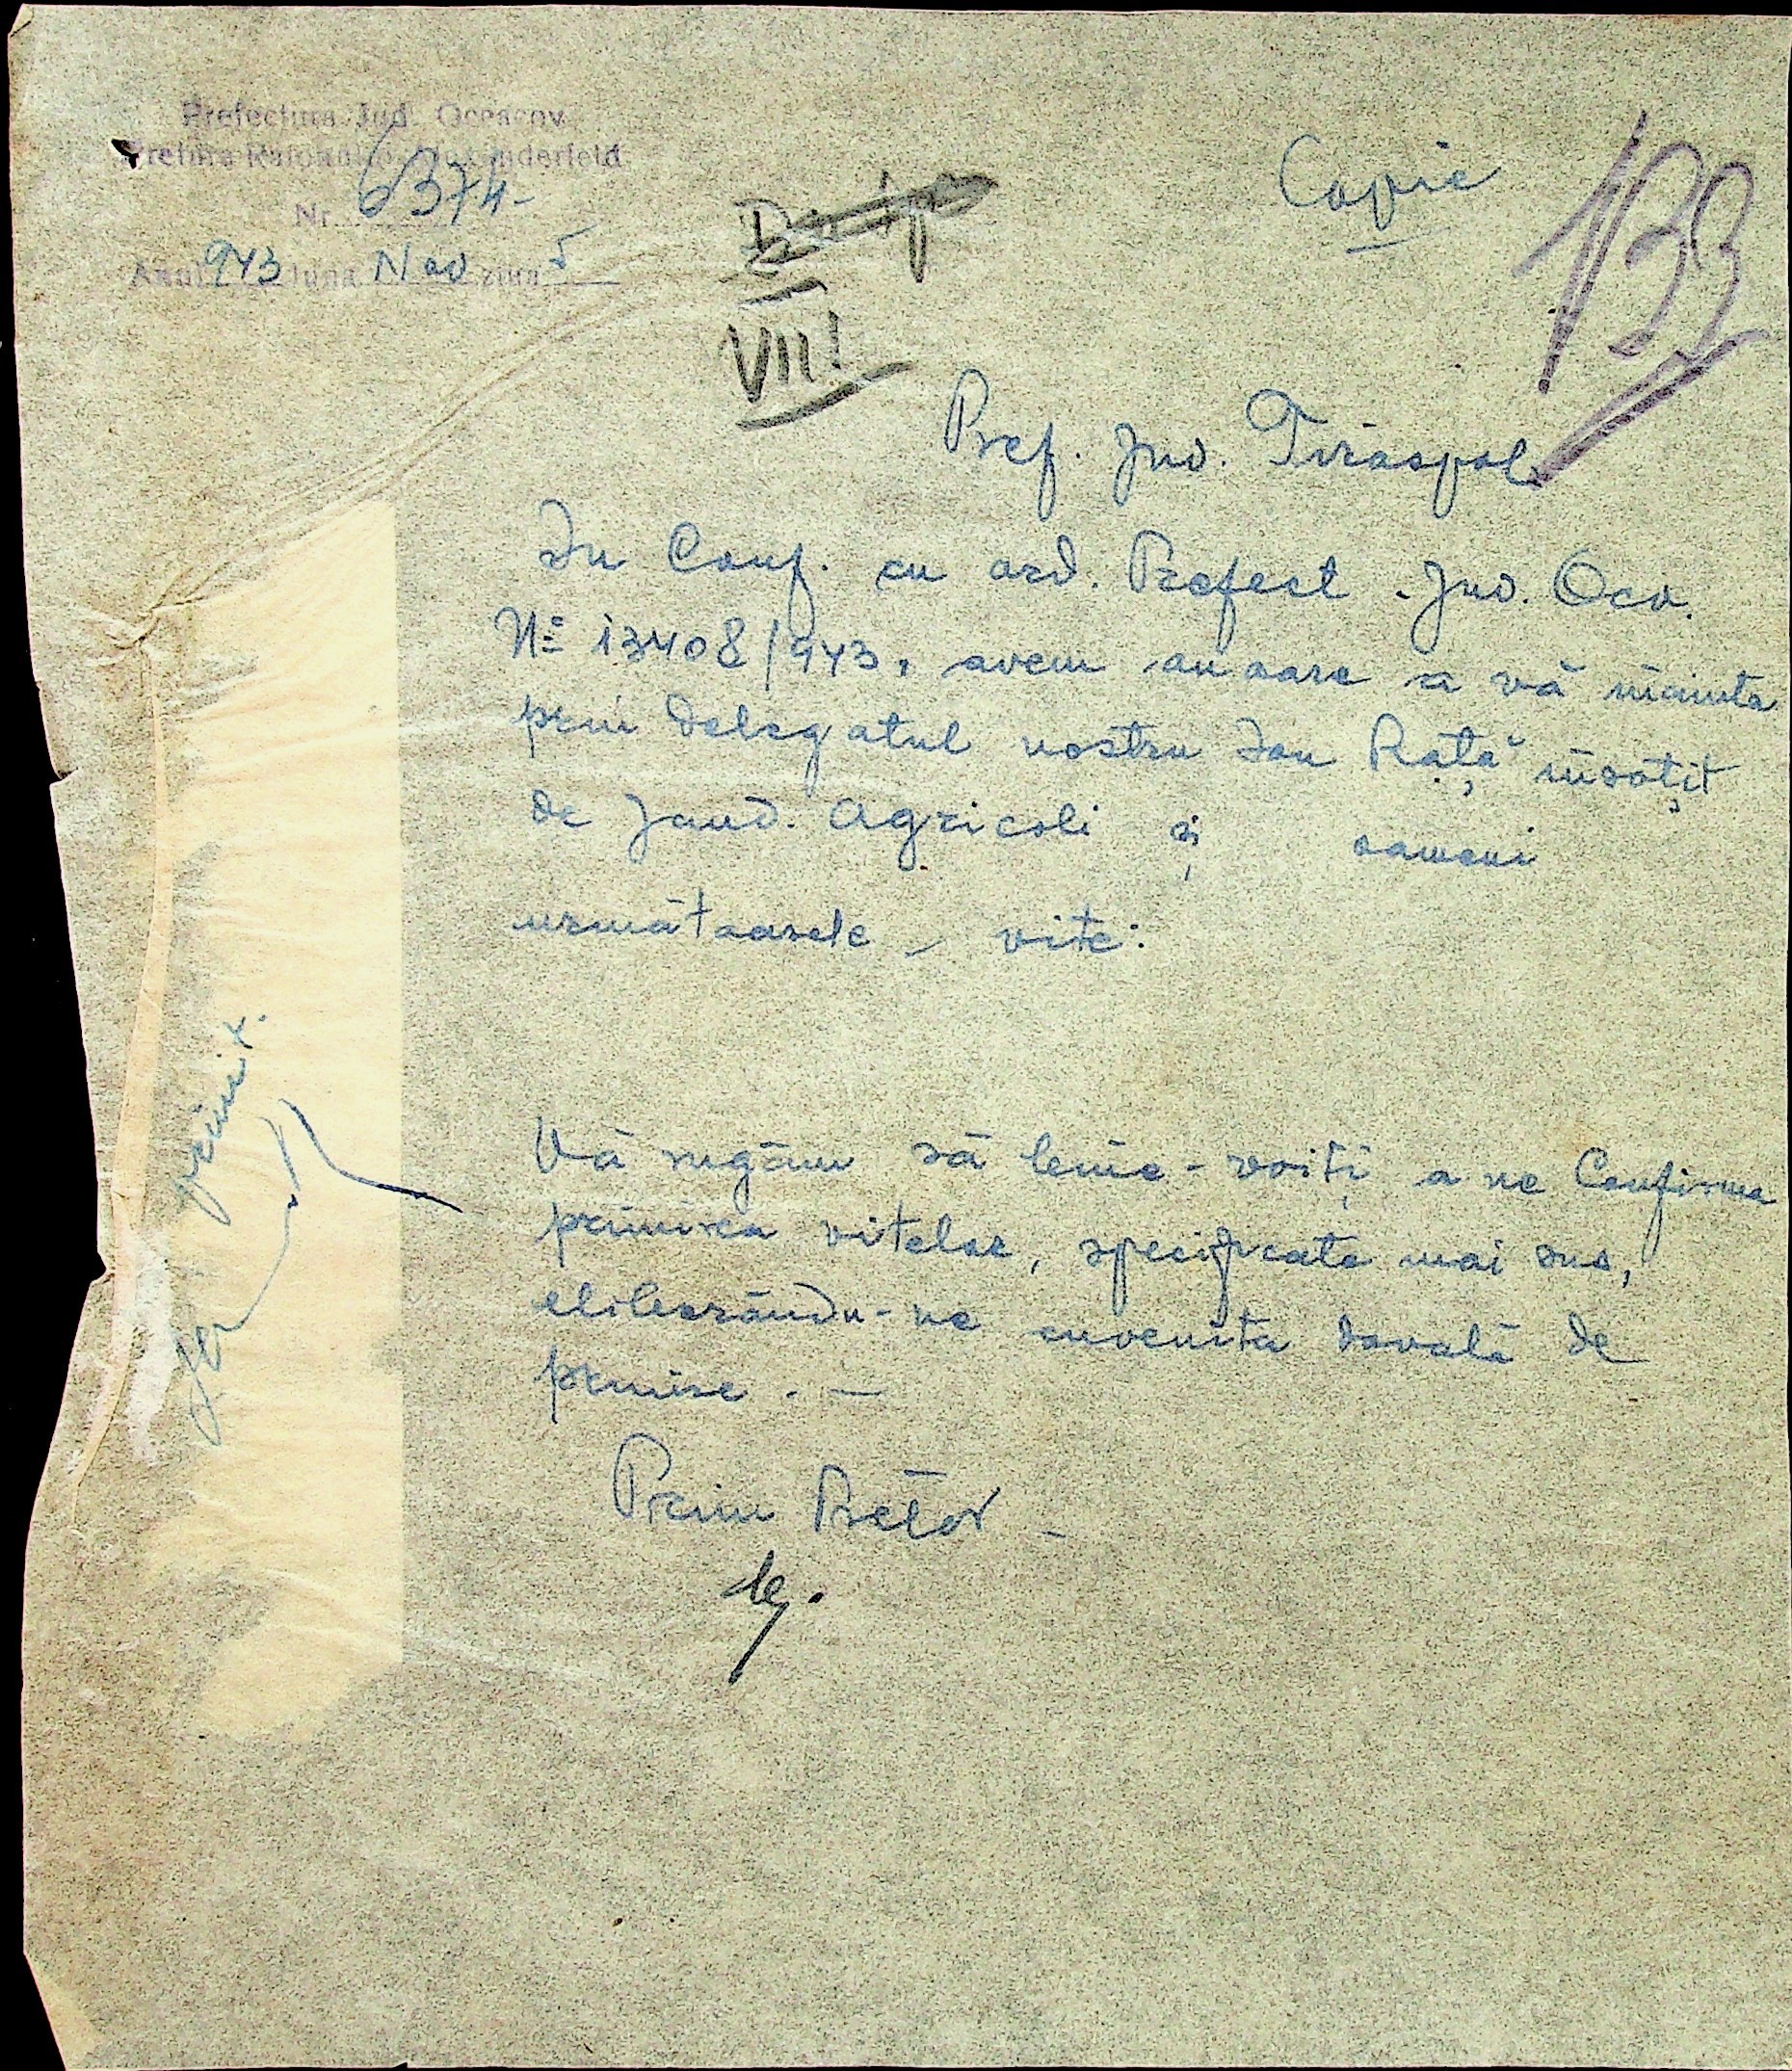 Prefectura Jud. Oceacov
Pretura Raionului Alexanderfeld
Nr. 6374-
Anul 943 luna Nov ziua 5
Copie
133
VII
Pref. Jud. Tiraspol
In Conf. cu ord. Prefect. Jud. Oco.
No 13408/943, avem onoare a vă înainta
prin delegatul nostru Ion Rață însoțit
de Jand. Agricoli și oameni
următoarele - vite:
Vă rugăm să bine-voiți a ne Confirma
primirea vitelor, specificate mai sus,
eliberându-ne cuvenita dovată de
primire. —
Prim Pretor -
primit.